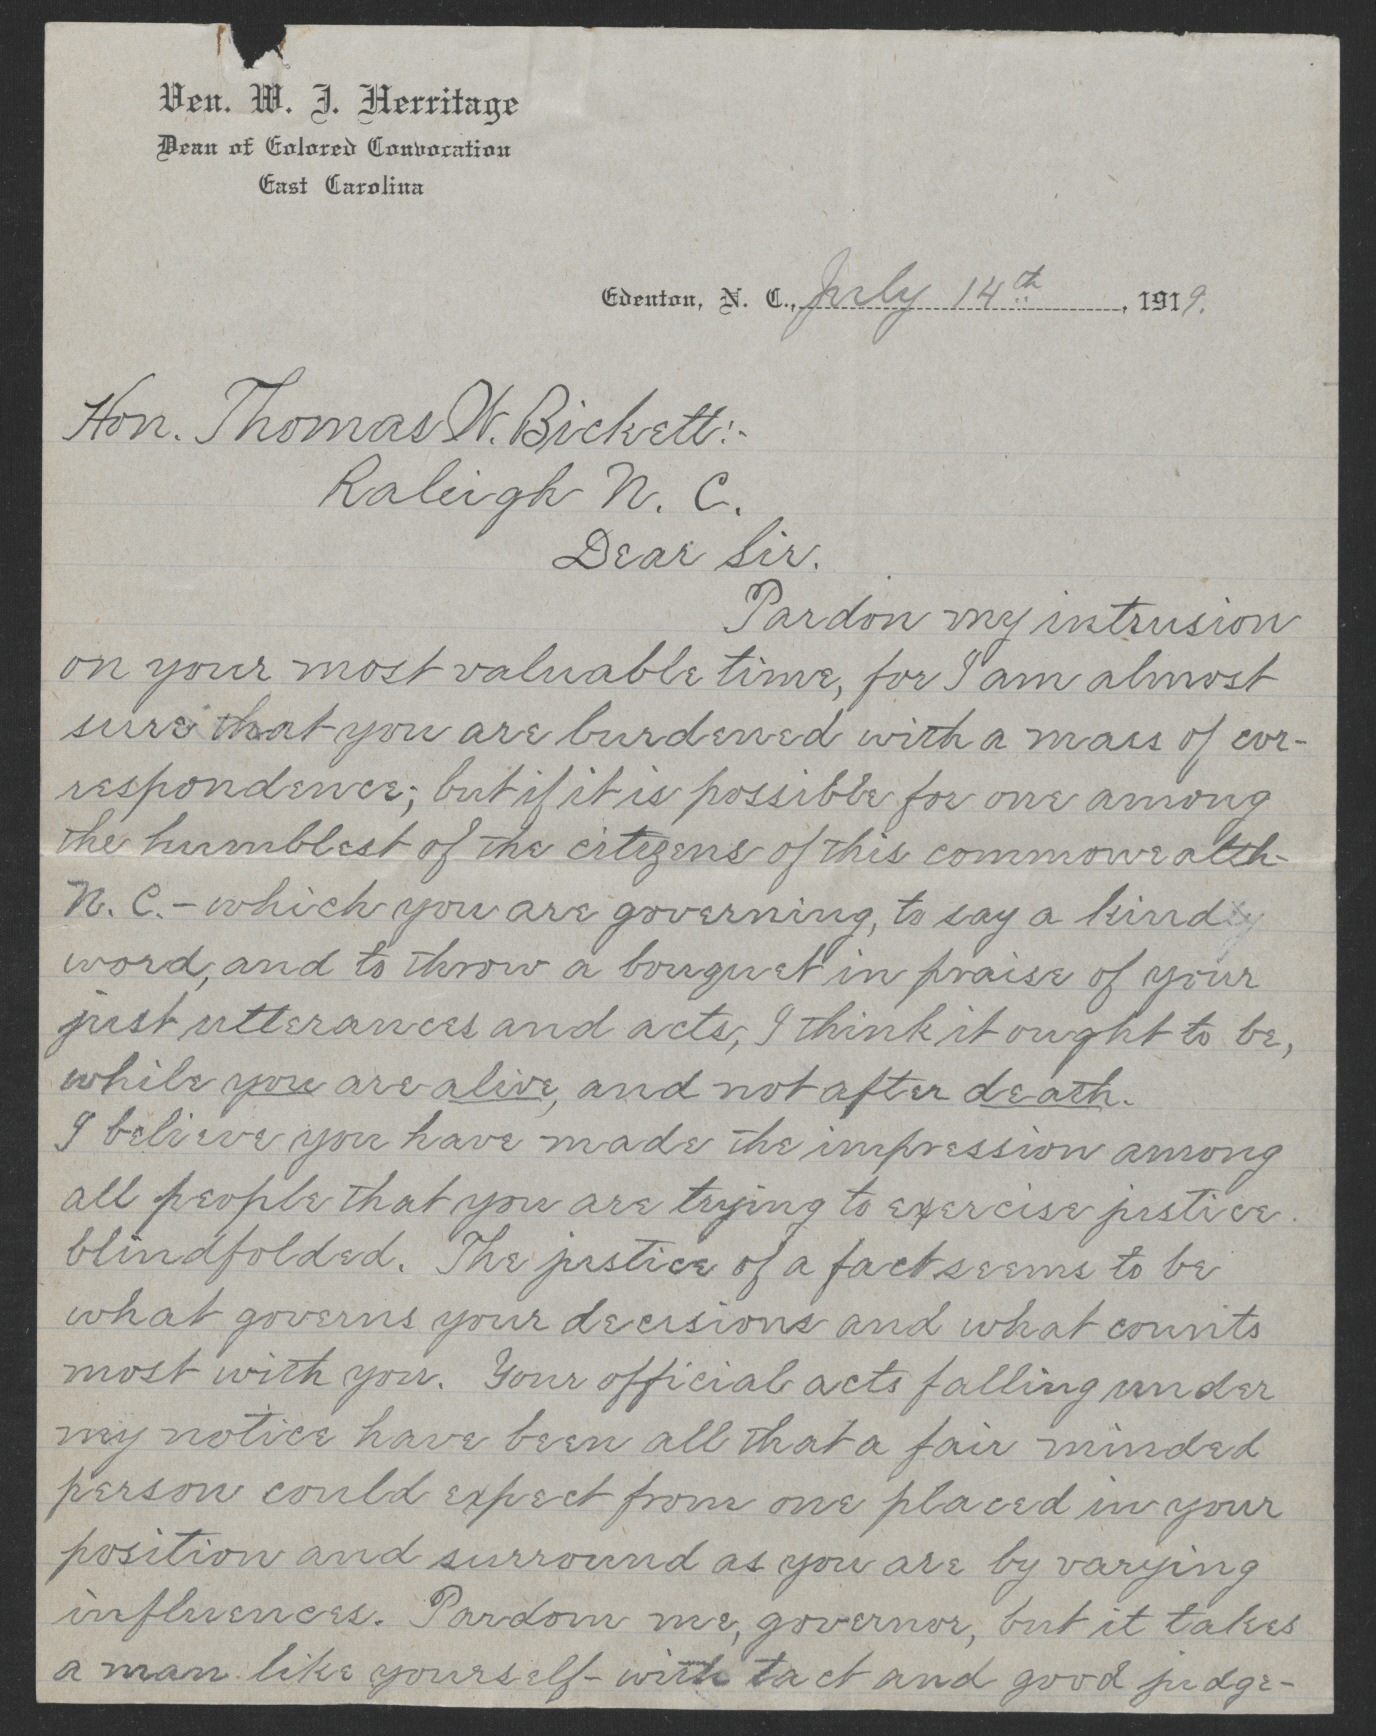 Ven. W. J. Herritage
Dean of Colored Convocation
East Carolina
Edenton, N. C., July 14th, 1919.
Hon. Thomas W. Bickett:-
Raleigh N. C.
Dear Sir.
Pardon my intrusion
on your most valuable time, for I am almost
sure that you are burdened with a mass of cor-
respondence; but if it is possible for one among
the humblest of the citizens of this commonwealth-
N. C.- which you are governing, to say a kind
word, and to throw a bouquet in praise of your
just utterances and acts, I think it ought to be,
while you are alive, and not after death.
I believe you have made the impression among
all people that you are trying to exercise justice
blindfolded. The justice of a fact seems to be
what governs your decisions and what counts
most with you. Your official acts falling under
my notice have been all that a fair minded
person could expect from one placed in your
position and surround as you are by varying
influences. Pardom me, governor, but it takes
a man like yourself- with tact and good judge-